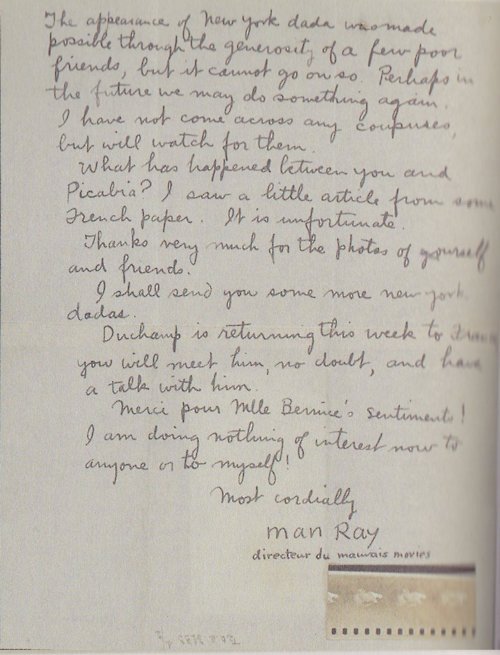 The appearance of New York dada was made
possible through the generosity of a few poor
friends, but it cannot go on so. Perhaps in
the future we may do something again.
I have not come across any coupures,
but will watch for them.
What has happened between you and
Picabia? I saw a little article from some
French paper. It is unfortunate.
Thanks very much for the photos of yourself
and friends.
I shall send you some more new york
dadas.
Duchamp is returning this week to France
you will meet him, no doubt, and have
a talk with him.
Merci pour Mlle Bernice's sentiments!
I am doing nothing of interest now to
anyone or to myself!
Most cordially
man Ray
directeur du mauvais movies